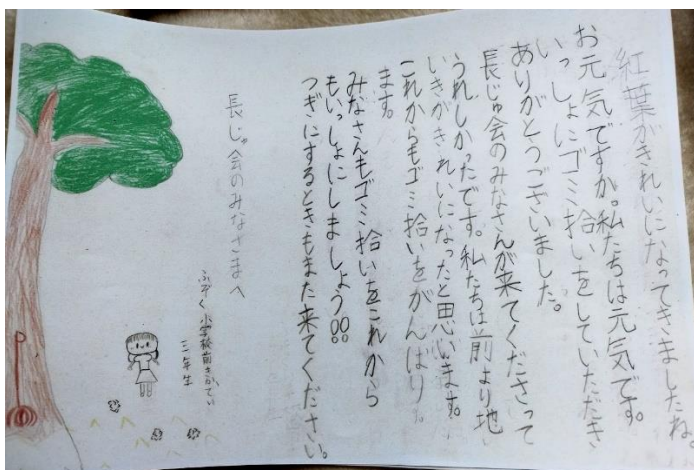 紅葉がきれいになってきましたね。
お元気ですか。私たちは元気です。
いっしょにゴミ拾いをしていただき
ありがとうございました。
長じゅ会のみなさんが来てくださって
うれしかったです。私たちは前より地
いきがきれいになったと思います。
これからもゴミ拾いをがんばり
ます。
みなさんもゴミ拾いをこれから
もいっしょにしましょう!!
つぎにするときもまた来てください。
長じゅ会のみなさまへ
ふぞく小学校前きかてい
三年生